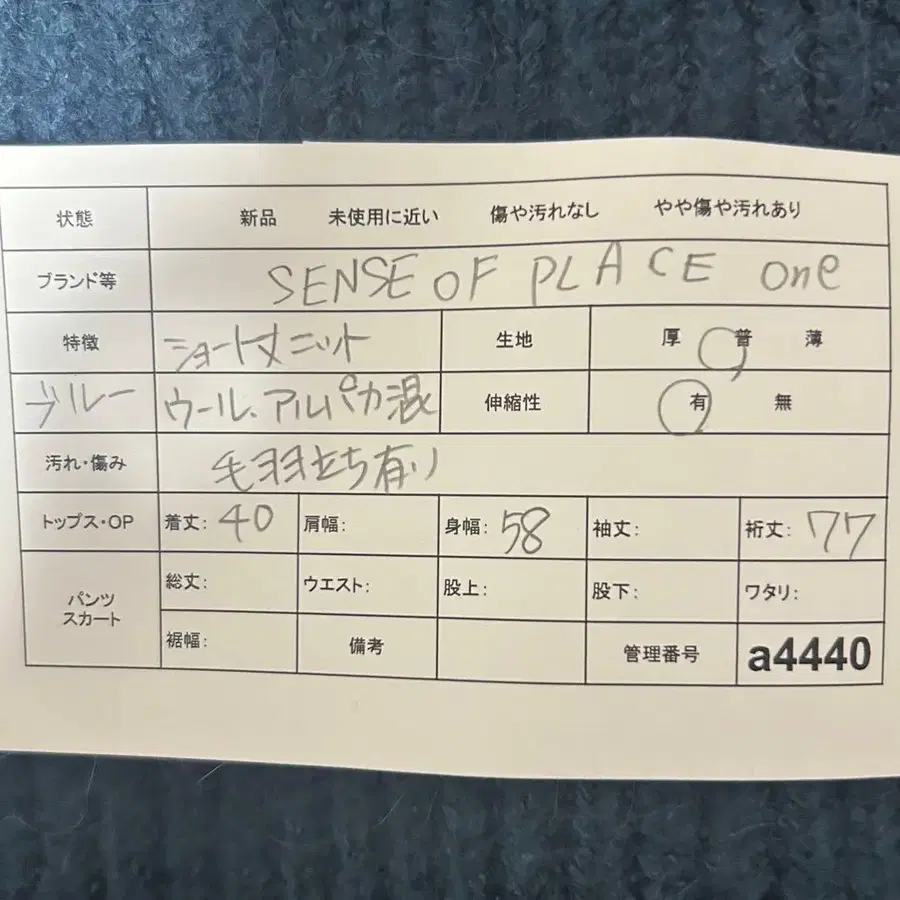 状態 新品 未使用に近い 傷や汚れなし やや傷や汚れあり
ブランド等 SENSE OF PLACE one
特徴 ショート丈ニット 生地 厚 普 薄
ブルー ウール、アルパカ混 伸縮性 有 無
汚れ・傷み 毛羽立ち有り
トップス・OP 着丈: 40 肩幅: 身幅: 58 袖丈: 裄丈: 77
パンツ 総丈: ウエスト: 股上: 股下: ワタリ:
スカート
裾幅: 備考 管理番号 a4440